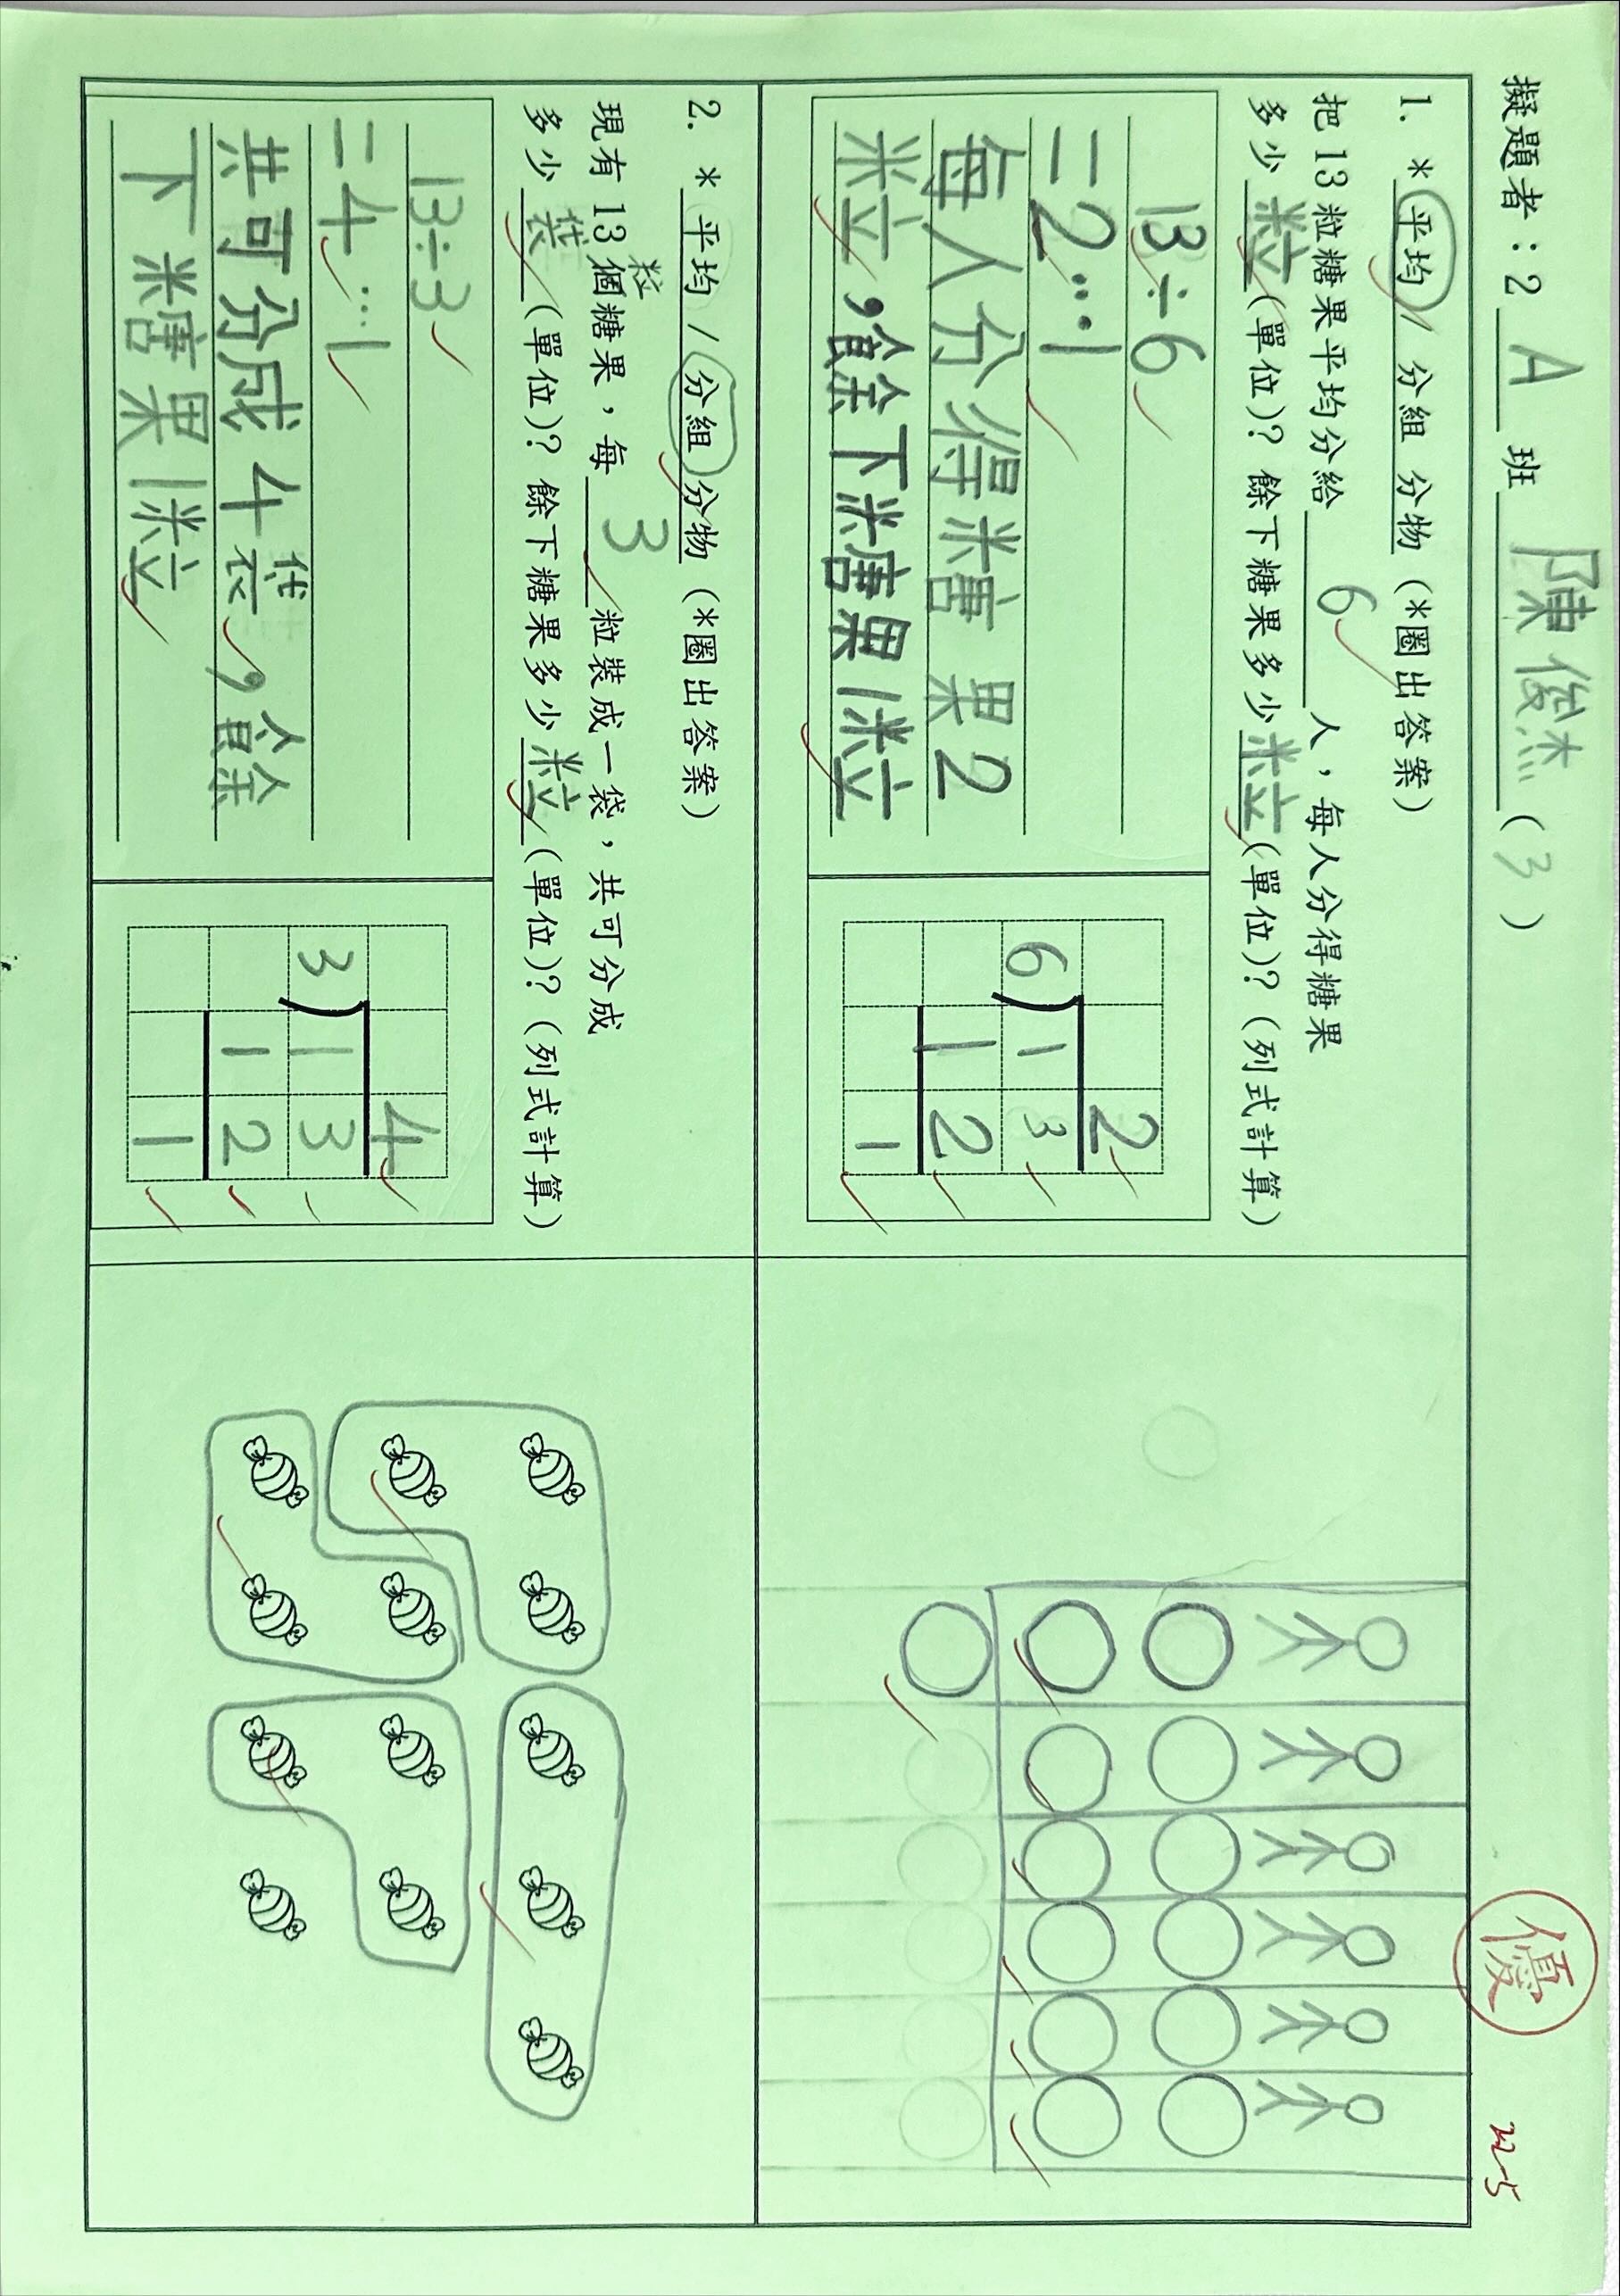 擬題者：2 A 班 陳俊杰 ( 3 )
優
22-5
1. *平均 / 分組 分物 (*圈出答案)
把 13 粒糖果平均分給 6 人，每人分得糖果
多少 粒 (單位)？餘下糖果多少 粒 (單位)？(列式計算)
13÷6
=2…1
每人分得糖果2
粒，餘下糖果1粒
2
6 1 3
1 2
1
2. *平均 / 分組 分物 (*圈出答案)
粒
現有 13 個糖果，每 3 粒裝成一袋，共可分成
多少 袋 (單位)？餘下糖果多少 粒 (單位)？(列式計算)
13÷3
=4…1
共可分成4袋，餘
下糖果1粒
4
3 1 3
1 2
1